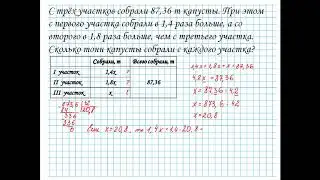 С трёх участков собрали 87,36 т капусты. При этом
с первого участка собрали в 1,4 раза больше, а со
второго в 1,8 раза больше, чем с третьего участка.
Сколько тонн капусты собрали с каждого участка?
Собрали, т Всего собрали, т
I участок 1,4x ?
II участок 1,8x ? 87,36
III участок x ?
1,4x + 1,8x + x = 87,36
4,2x = 87,36
x = 87,36 : 4,2
x = 873,6 : 42
x = 20,8
873,6 42
84 20,8
336
336
0
Если x = 20,8, то 1,4x = 1,4 · 20,8 =